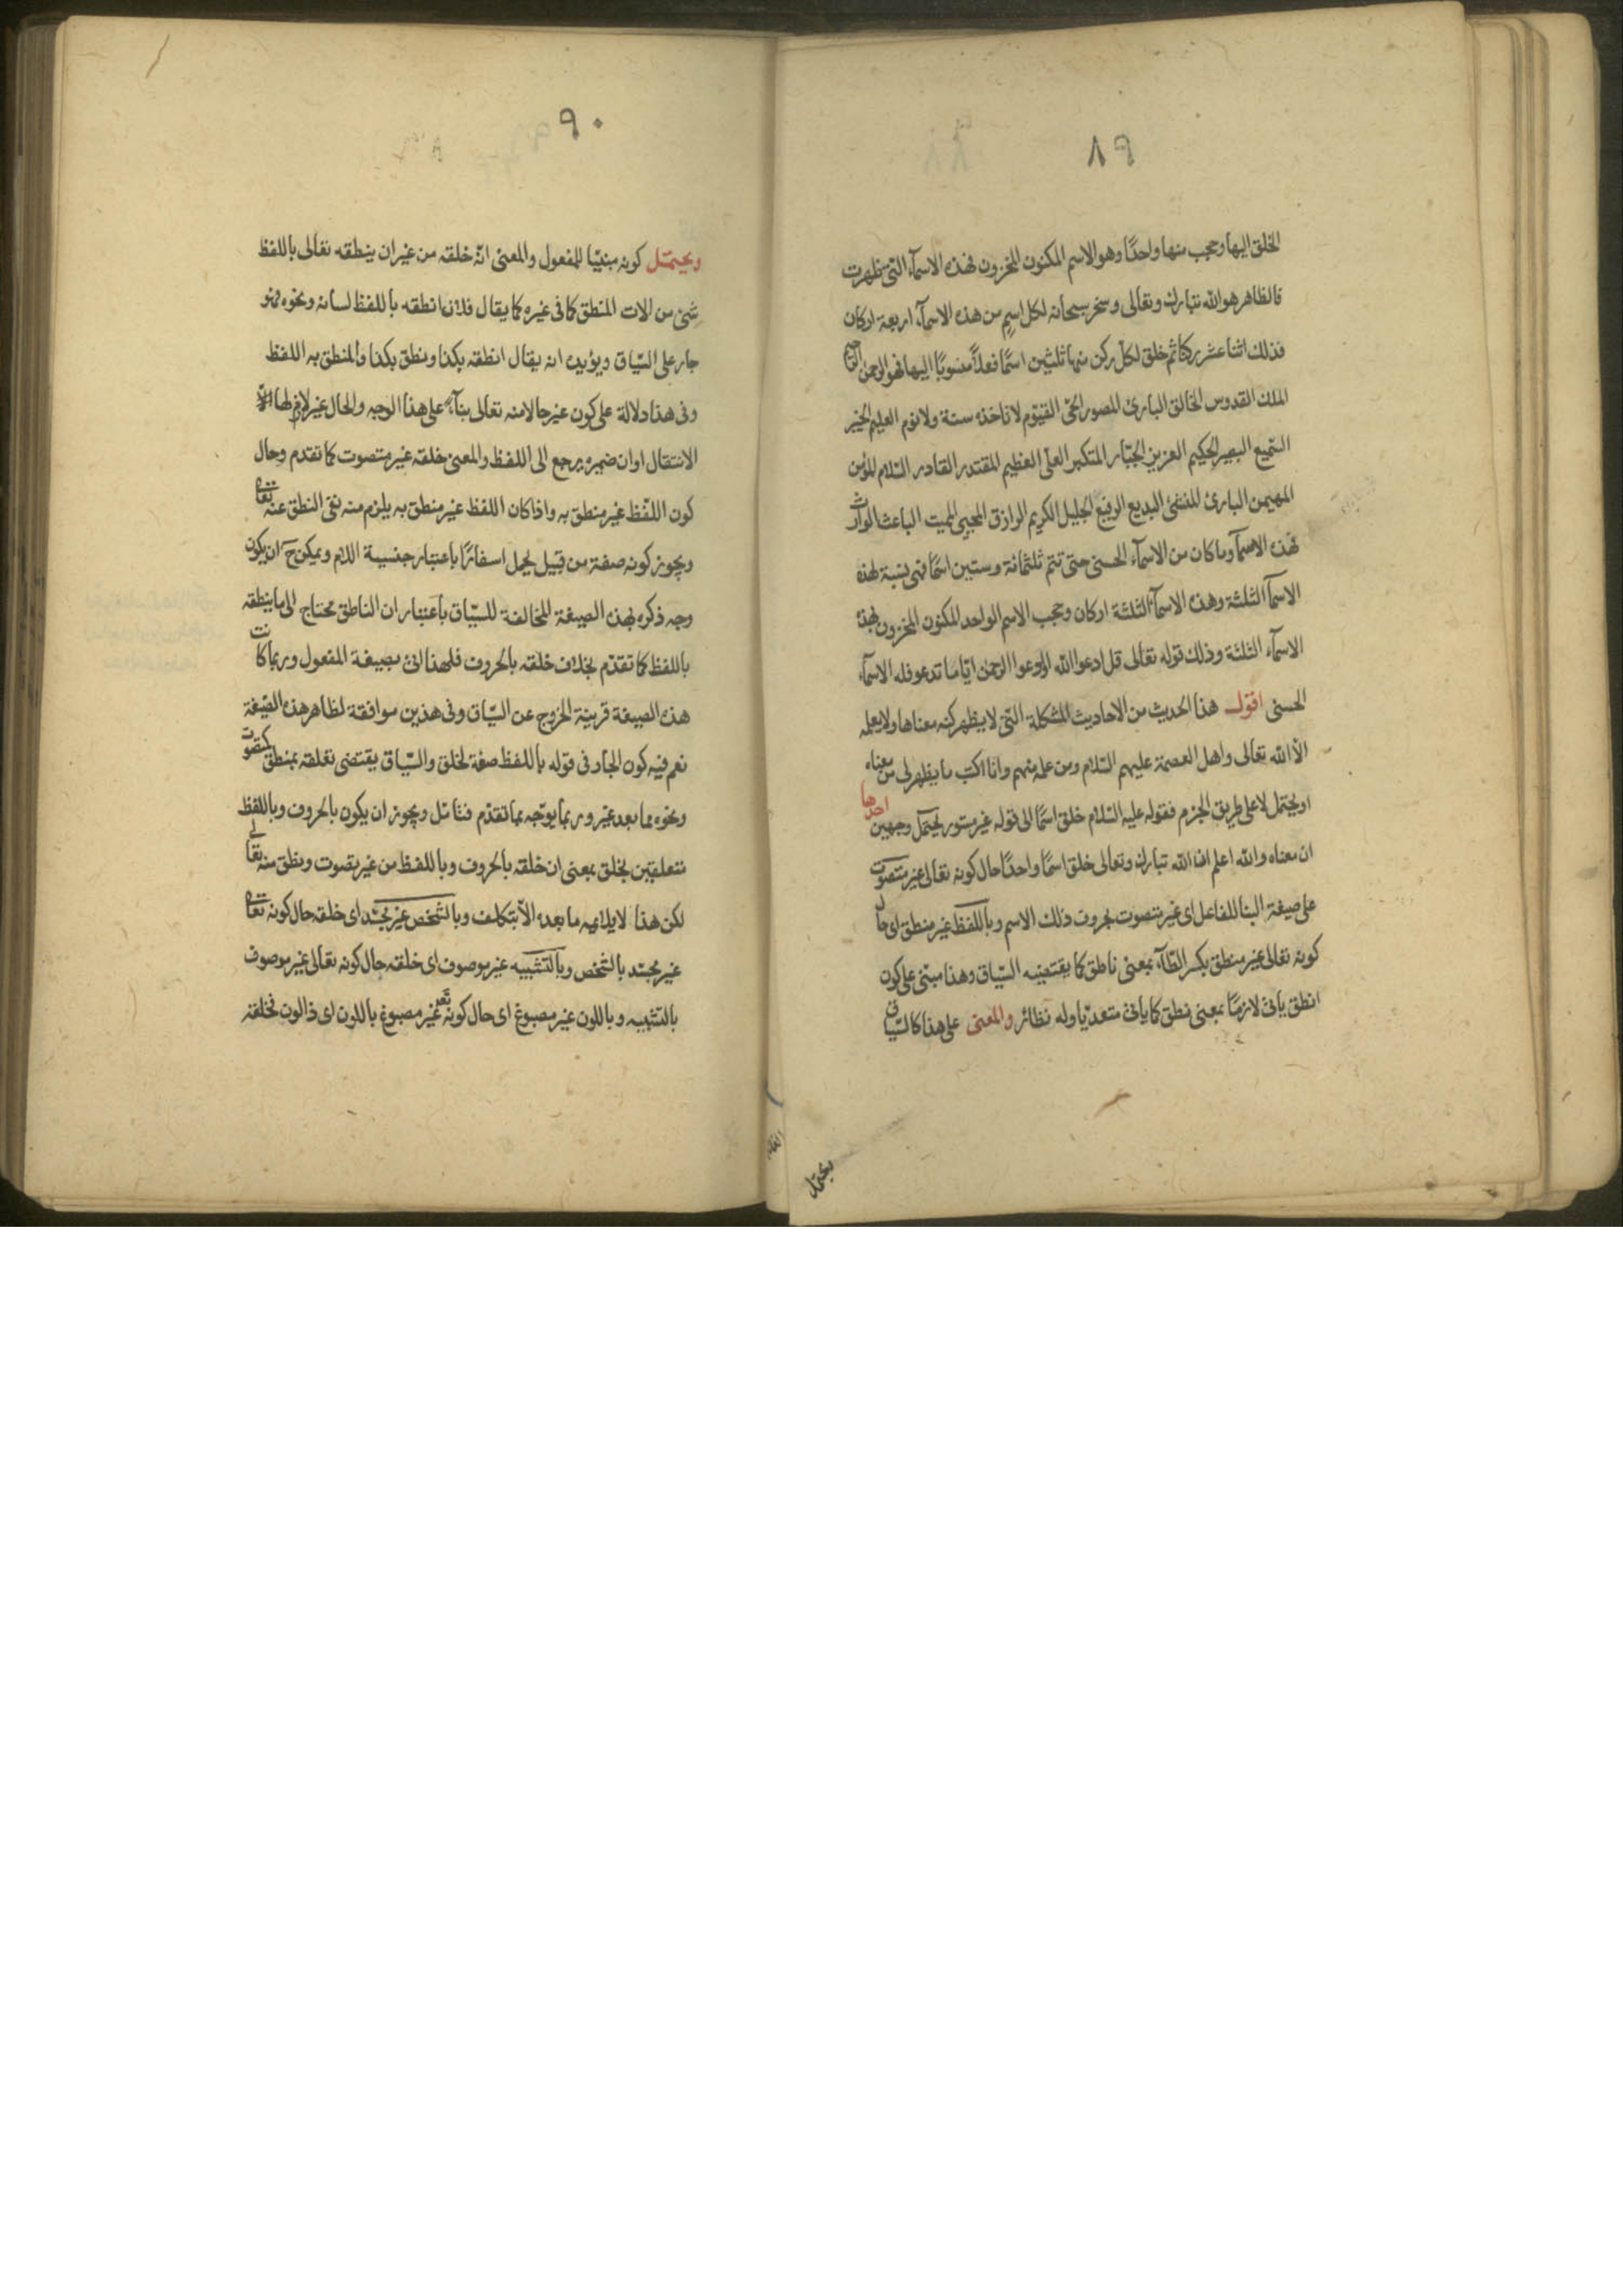 ٨٩
الخلق اليها وحجب منها واحدًا وهو الاسم المكنون المخزون فهذه الاسمآء التى ظهرت
فالظاهر هو الله تبارك وتعالى وسخر سبحانه لكل اسم من هذه الاسمآء اربعة اركان
فذلك اثنا عشر ركنا ثم خلق لكل ركن منها ثلثين اسمًا فعلاً منسوبًا اليها فهو الرحمن الرحيم
الملك القدوس الخالق البارئ المصور الحىّ القيّوم لا تاخذه سنة ولا نوم العليم الخبير
السّميع البصير الحكيم العزيز الجبّار المتكبر العلىّ العظيم المقتدر القادر السّلام المؤمن
المهيمن البارئ المنشئ البديع الرفيع الجليل الكريم الرازق المحيى المميت الباعث الوارث
فهذه الاسمآ وما كان من الاسمآء الحسنى حتى تتم ثلثمائة وستين اسمًا فهى نسبة لهذه
الاسمآ الثلثة وهذه الاسمآء الثلثة اركان وحجب الاسم الواحد المكنون المخزون بهذه
الاسمآء الثلثة وذلك قوله تعالى قل ادعوا الله او ادعوا الرحمن ايّا ما تدعو فله الاسمآء
الحسنى اقول هذا الحديث من الاحاديث المشكلة التى لا يظهر كنه معناها ولا يعلمه
الا الله تعالى واهل العصمة عليهم السّلام ومن علمه منهم وانا اكتب ما يظهر لى من معناه
او يحتمل لا على طريق الجزم فقوله عليه السّلام خلق اسمًا الى قوله غير مستور يحتمل وجهين احدها
ان معناه والله اعلم ان الله تبارك وتعالى خلق اسمًا واحدًا حال كونه تعالى غير متصوت
على صيغة البنا للفاعل اى غير متصوت بحروف ذلك الاسم وباللفظ غير منطق اى حال
كونه تعالى غير منطق بكسر الطّآء بمعنى ناطق كما يقتضيه السّياق وهذا مبنى على كون
انطق ياتى لازمًا بمعنى نطق كما ياتى متعدّيا وله نظائر والمعنى على هذا كالسّياق
يحتمل
٩٠
ويحتمل كونه مبنيّا للمفعول والمعنى انّه خلقه من غير ان ينطقه تعالى باللفظ
شئ من الات المنطق كما فى غيره كما يقال فلان انطقه باللفظ لسانه ونحوه فهو
جار على السّياق ويؤيده انه يقال انطقه بكذا ونطق بكذا والمنطق به اللفظ
وفى هذا دلالة على كون غير حالا منه تعالى بنآء على هذا الوجه والحال غير لازم لها
الانتقال او ان ضميره يرجع الى اللفظ والمعنى خلقه غير متصوت كما تقدم وحال
كون اللّفظ غير منطق به واذا كان اللفظ غير منطق به يلزم منه نفى النطق عنه تعالى
ويجوز كونه صفة من قبيل يحمل اسفارًا باعتبار جنسية اللام ويمكن ح ان يكون
وجه ذكره بهذه الصيغة المخالفة للسّياق باعتبار ان الناطق محتاج الى ما ينطقه
باللفظ كما تقدّم بخلاف خلقه بالحروف فلهذا اتى بصيغة المفعول وربما كانت
هذه الصيغة قرينة الخروج عن السّياق وفى هذين موافقة لظاهر هذه الصّيغة
نعم فيه كون الجار فى قوله باللفظ صفة لخلق والسّياق يقتضى تعلقه بمنطق كمتصوت
ونحوه مما بعد غير وربما يوجّه بما تقدّم فتامّل ويجوز ان يكون بالحروف وباللفظ
متعلقين بخلق بمعنى ان خلقه بالحروف وباللفظ من غير تصوت ونطق منه تعالى
لكن هذا لا يلائمه ما بعده الّا بتكلف وبالشخص غير مجسّد اى خلقه حال كونه تعالى
غير مجسّد بالشخص وبالتشبيه غير موصوف اى خلقه حال كونه تعالى غير موصوف
بالتشبيه وباللون غير مصبوغ اى حال كونه تعالى غير مصبوغ باللون اى ذا لون فخلقته